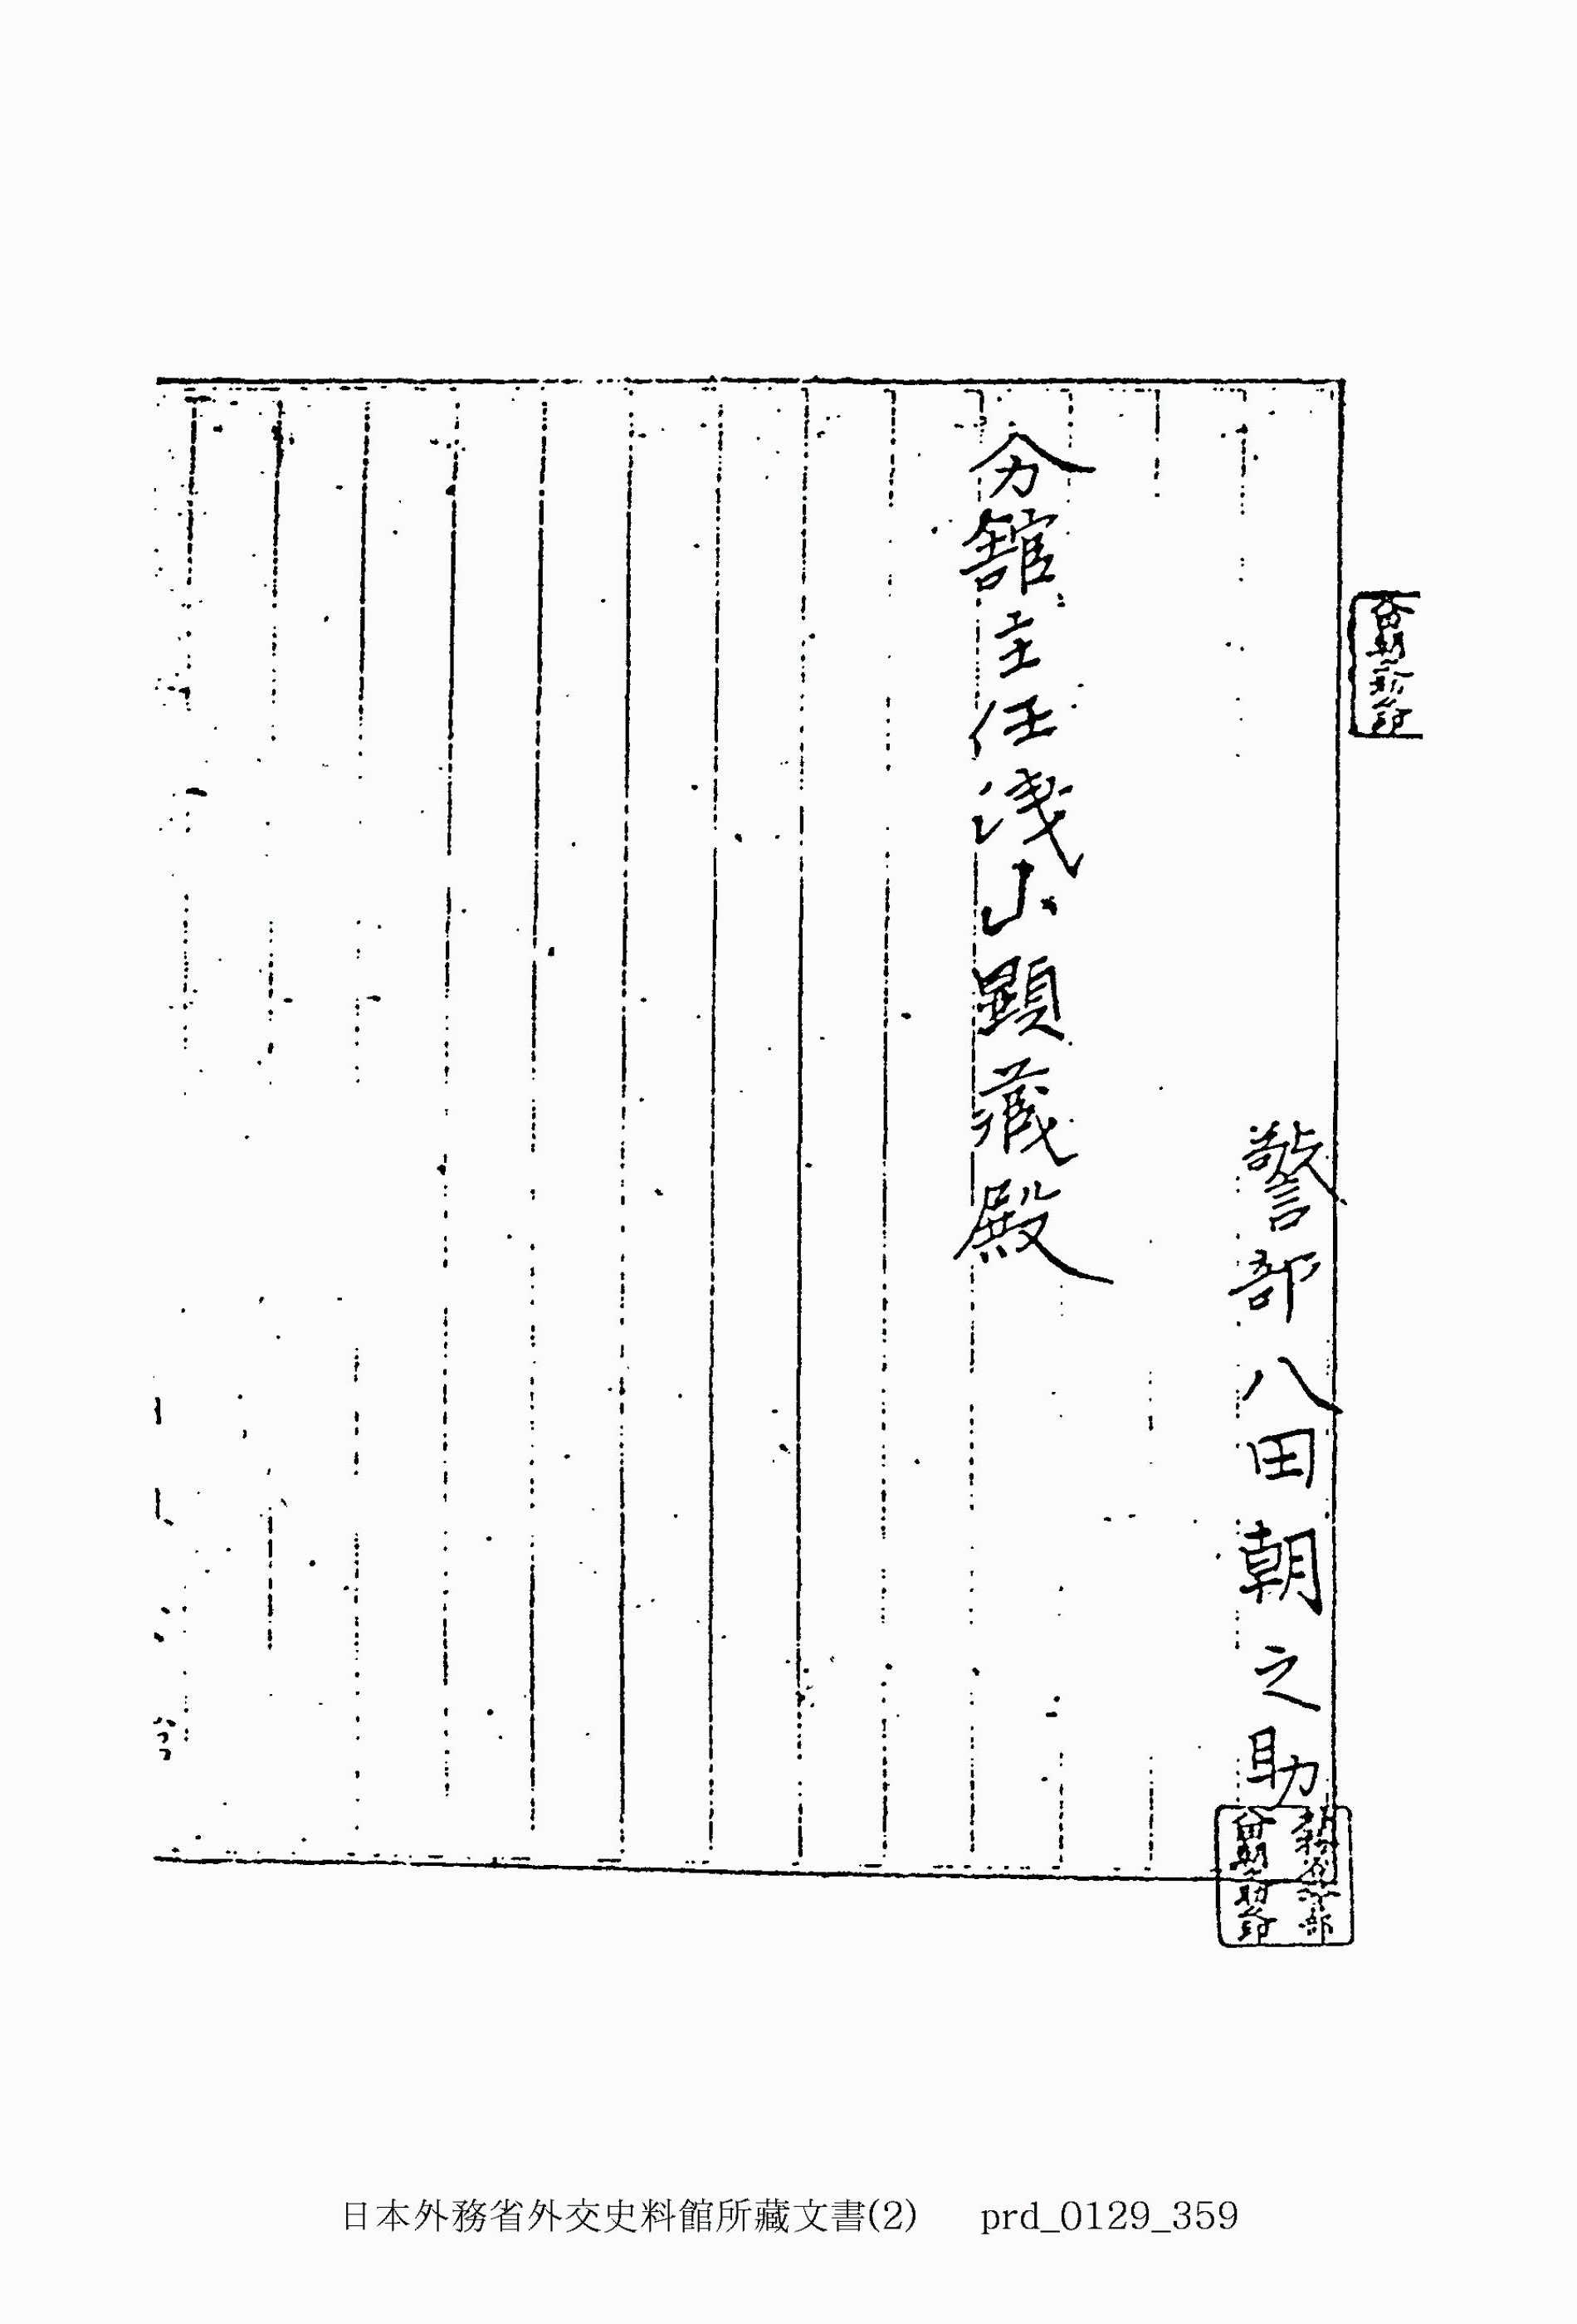 警部八田朝之助
分館主任浅山顕蔵殿
日本外務省外交史料館所藏文書(2) prd_0129_359